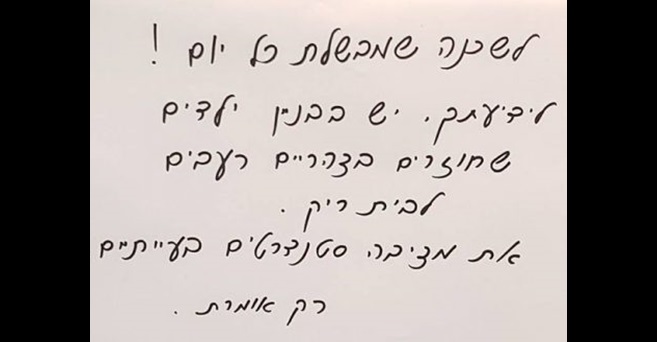 לשכנה שמבשלת כל יום!
לידיעתך, יש בבניין ילדים
שחוזרים בצהריים רעבים
לבית ריק.
את מציבה סטנדרטים בעייתיים
רק אומרת.